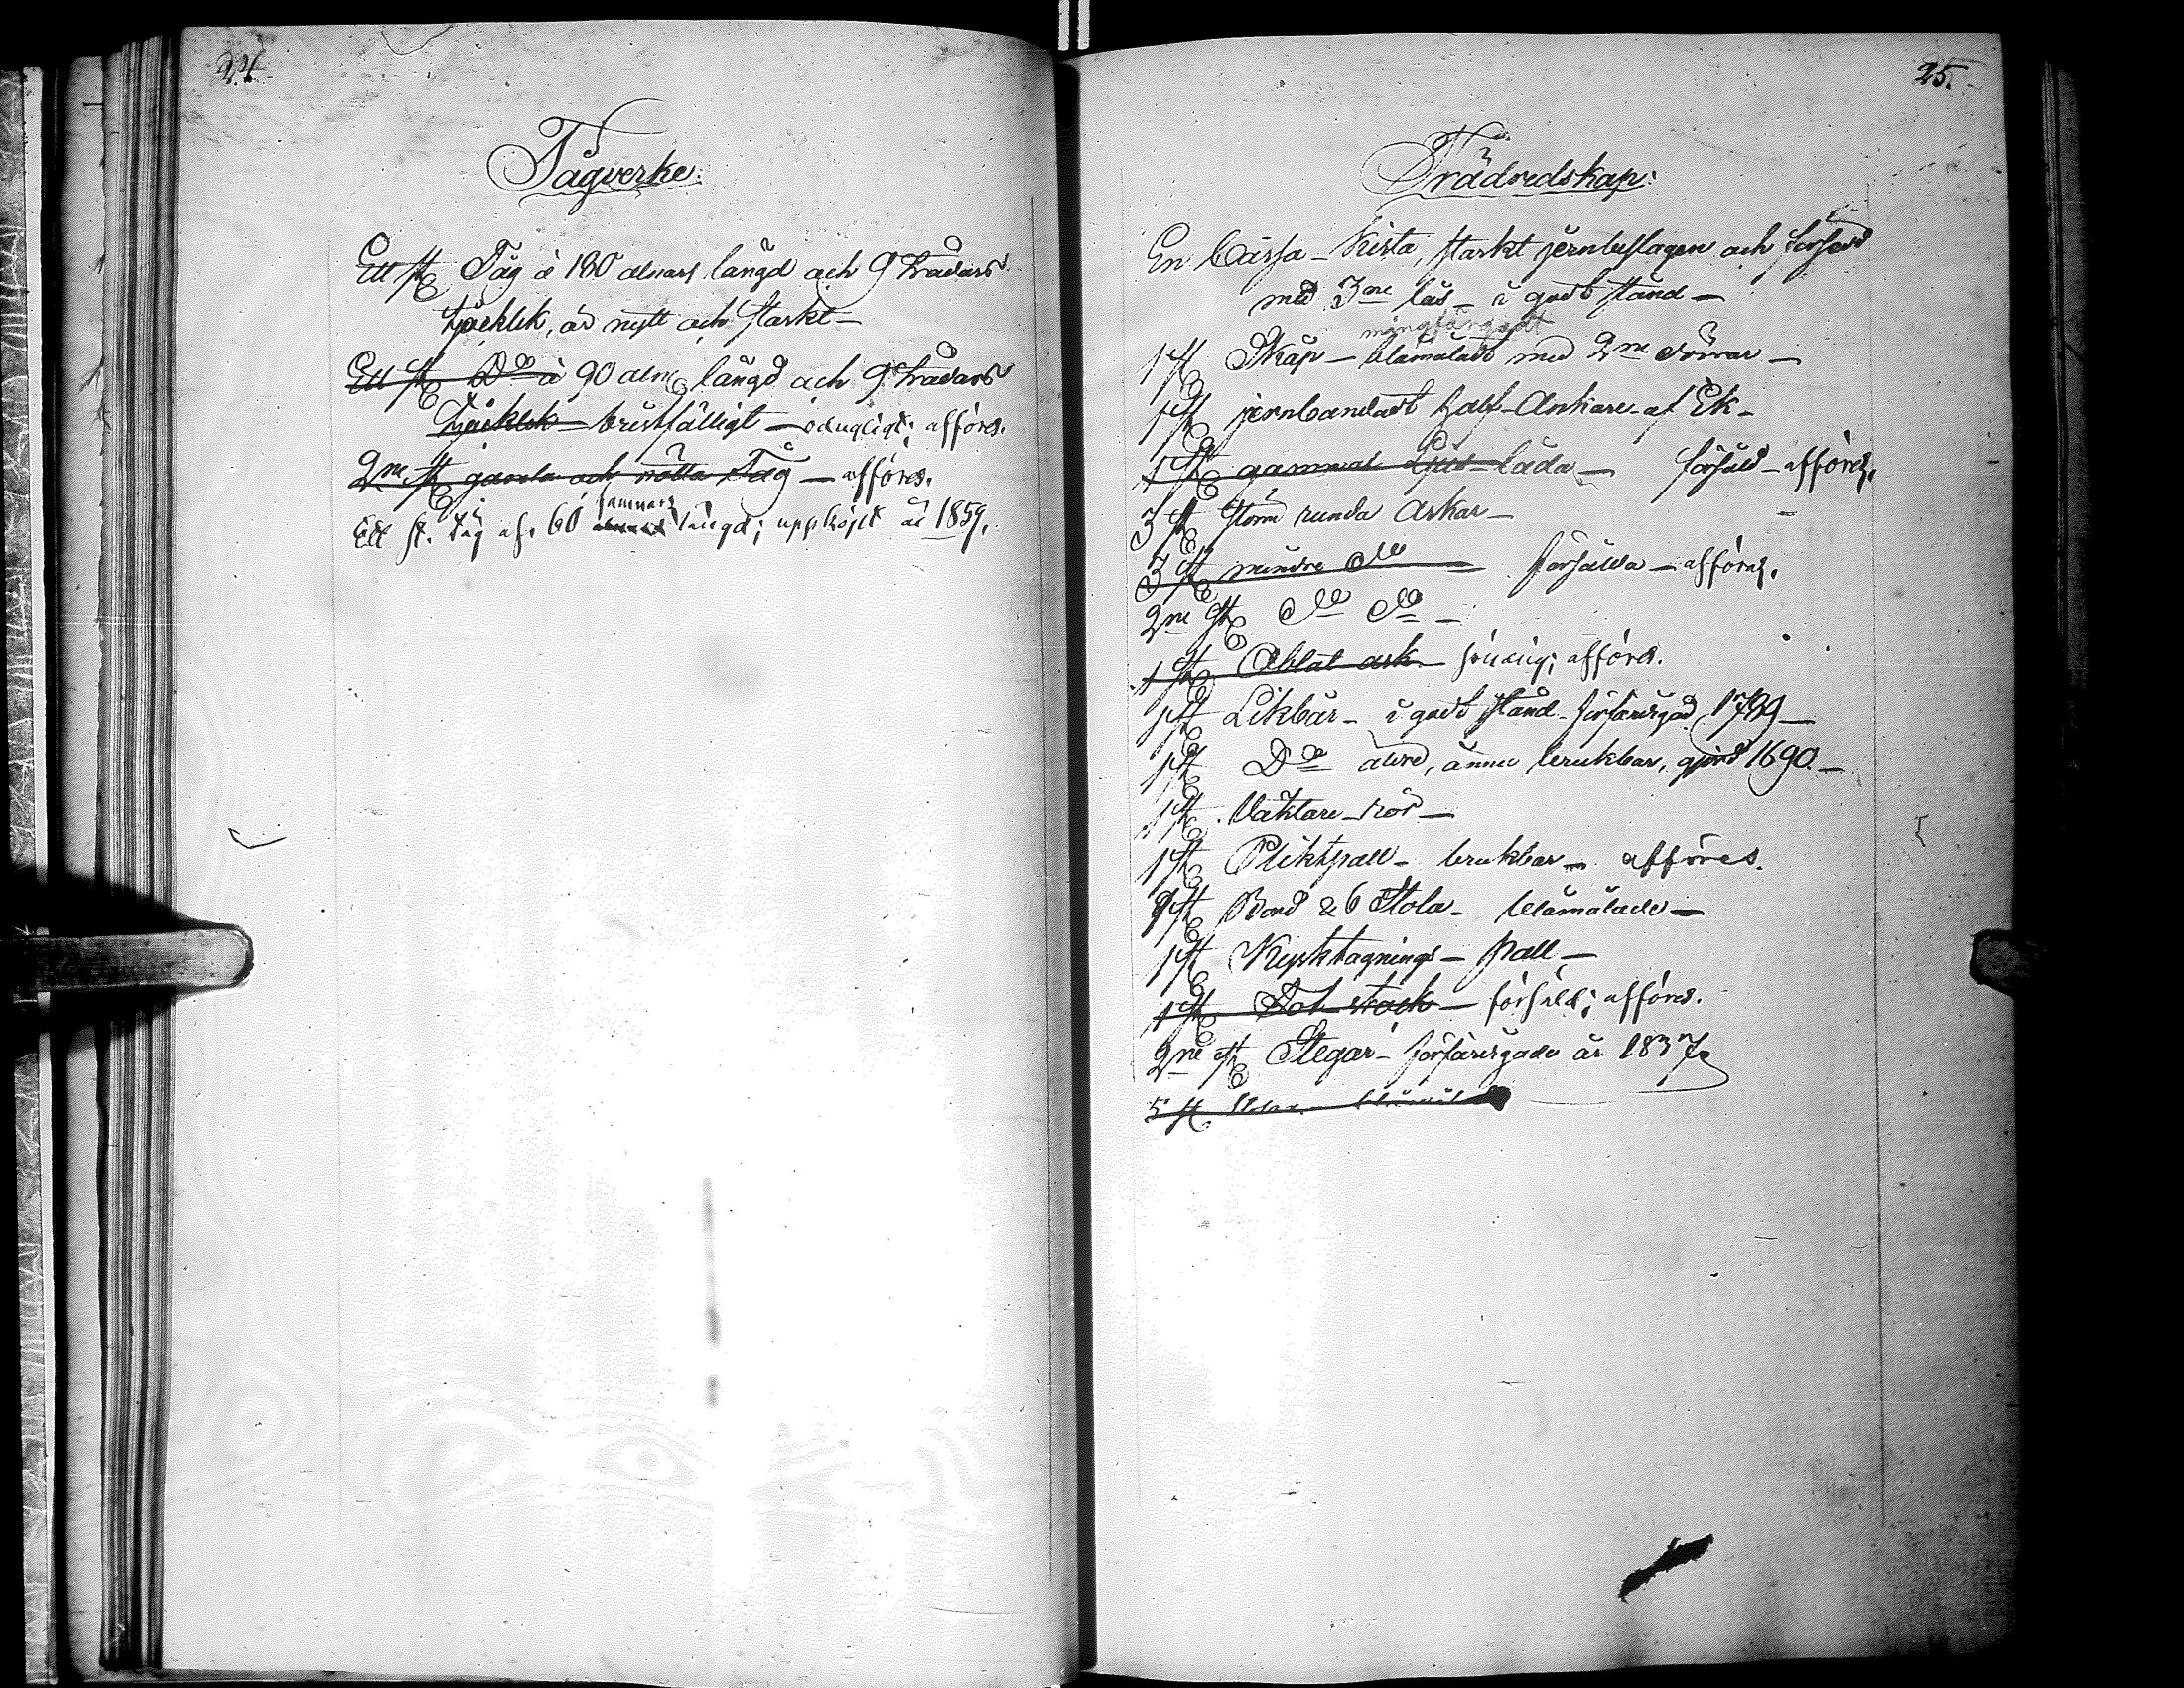 24.
Tågverke:
Ett st Tåg à 180 alnars längd och 9 trådars
tjocklek, är nytt och starkt –
Ett st Do à 90 aln längd och 9 trådars
tjocklek – bristfälligt – odugligt; afföres.
2ne st gamla och nötta Tåg – afföres.
famnars
Ett st. tåg af 60 längd; uppköpt år 1859.
25.
Trädredskap:
En Cassa-Kista, starkt jernbeslagen och försedd
med 3ne lås – i godt stånd –
mångfärgadt
1 st Skåp – blåmåladt med 2ne dörrar –
1 st jernbandadt half-Ankare af Ek –
1 st gammal Ljus-låda – försåld – afföres.
3 st större runda Askar –
3 st mindre do – försålda – afföres.
2ne st do do –
1 st Oblat-ask – sönding; afföres.
1 st Likbår – i godt stånd – förfärdigad 1799 –
1 st Do äldre, ännu brukbar, gjord 1690. –
1 st Väktare-rör –
1 st Pliktpall – brukbar – afföres.
1 st Bord & 6 Stolar – blåmålade –
1 st Kyrktagnings-pall –
1 st stock – försåld; afföres.
2ne st Stegar – förfärdigade år 1837
5 st Stolar blåmålade